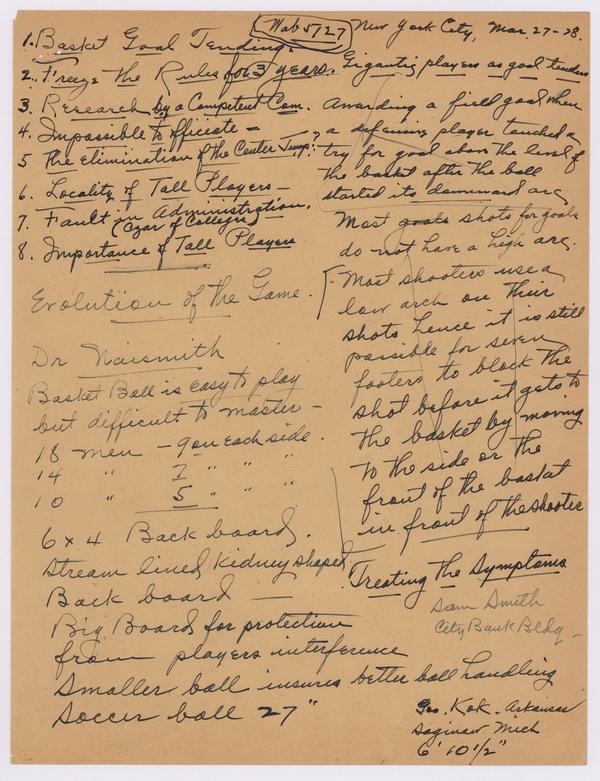 Wab 5/27 New York City, Mar. 27-28.
1. Basket Goal Tending.
2. Freeze the Rules for 3 years.
3. Research by a Competent Com.
4. Impossible to officiate -
5 The Elimination of the Center Jump?
6. Locality of Tall Players -
7. Fault in Administration.
(Czar of Colleges)
8. Importance of Tall Players
Evolution of the Game.
Dr Naismith
Basket Ball is easy to play
but difficult to master -
18 men - 9 on each side.
14 " 7 " " "
10 " 5 " " "
6 x 4 Back board.
Stream lined kidney shaped
Back board -
Big Board for protection
from players interference
Smaller ball insures better ball handling
Soccer ball 27"
Gigantic players as goal tenders
Awarding a field goal when
a defensive player touched a
try for goal above the level of
the basket after the ball
started its downward arc
Most goals shots for goals
do not have a high arc.
Most shooters use a
low arch on their
shots hence it is still
possible for seven
footers to block the
shot before it gets to
the basket by moving
to the side or the
front of the basket
in front of the shooter
Treating the Symptoms
Sam Smith
City Bank Bldg -
Geo. Kok - Arkansas
Saginaw Mich
6' 10 1/2"